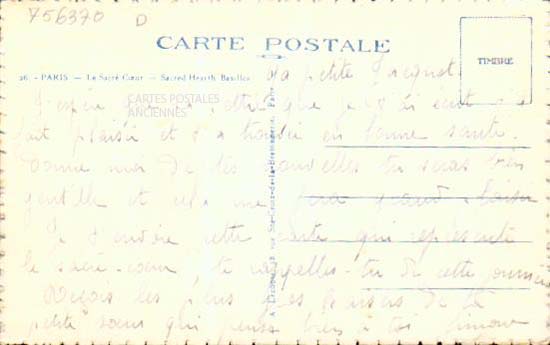 756370 D
CARTE POSTALE
TIMBRE
26. - PARIS — Le Sacré Cœur — Sacred Hearth Basilica
Ma petite
CARTES POSTALES
ANCIENNES
J'espère que la que je t'ai
fait plaisir et t'a trouvée en bonne santé.
Donne moi de tes nouvelles tu seras très
gentille et cela me fera grand plaisir
Je t'envoie cette carte qui représente
le sacré-cœur te rappelles-tu de cette journée
Reçois les plus gros baisers de ta
petite sœur qui pense bien à toi Simone